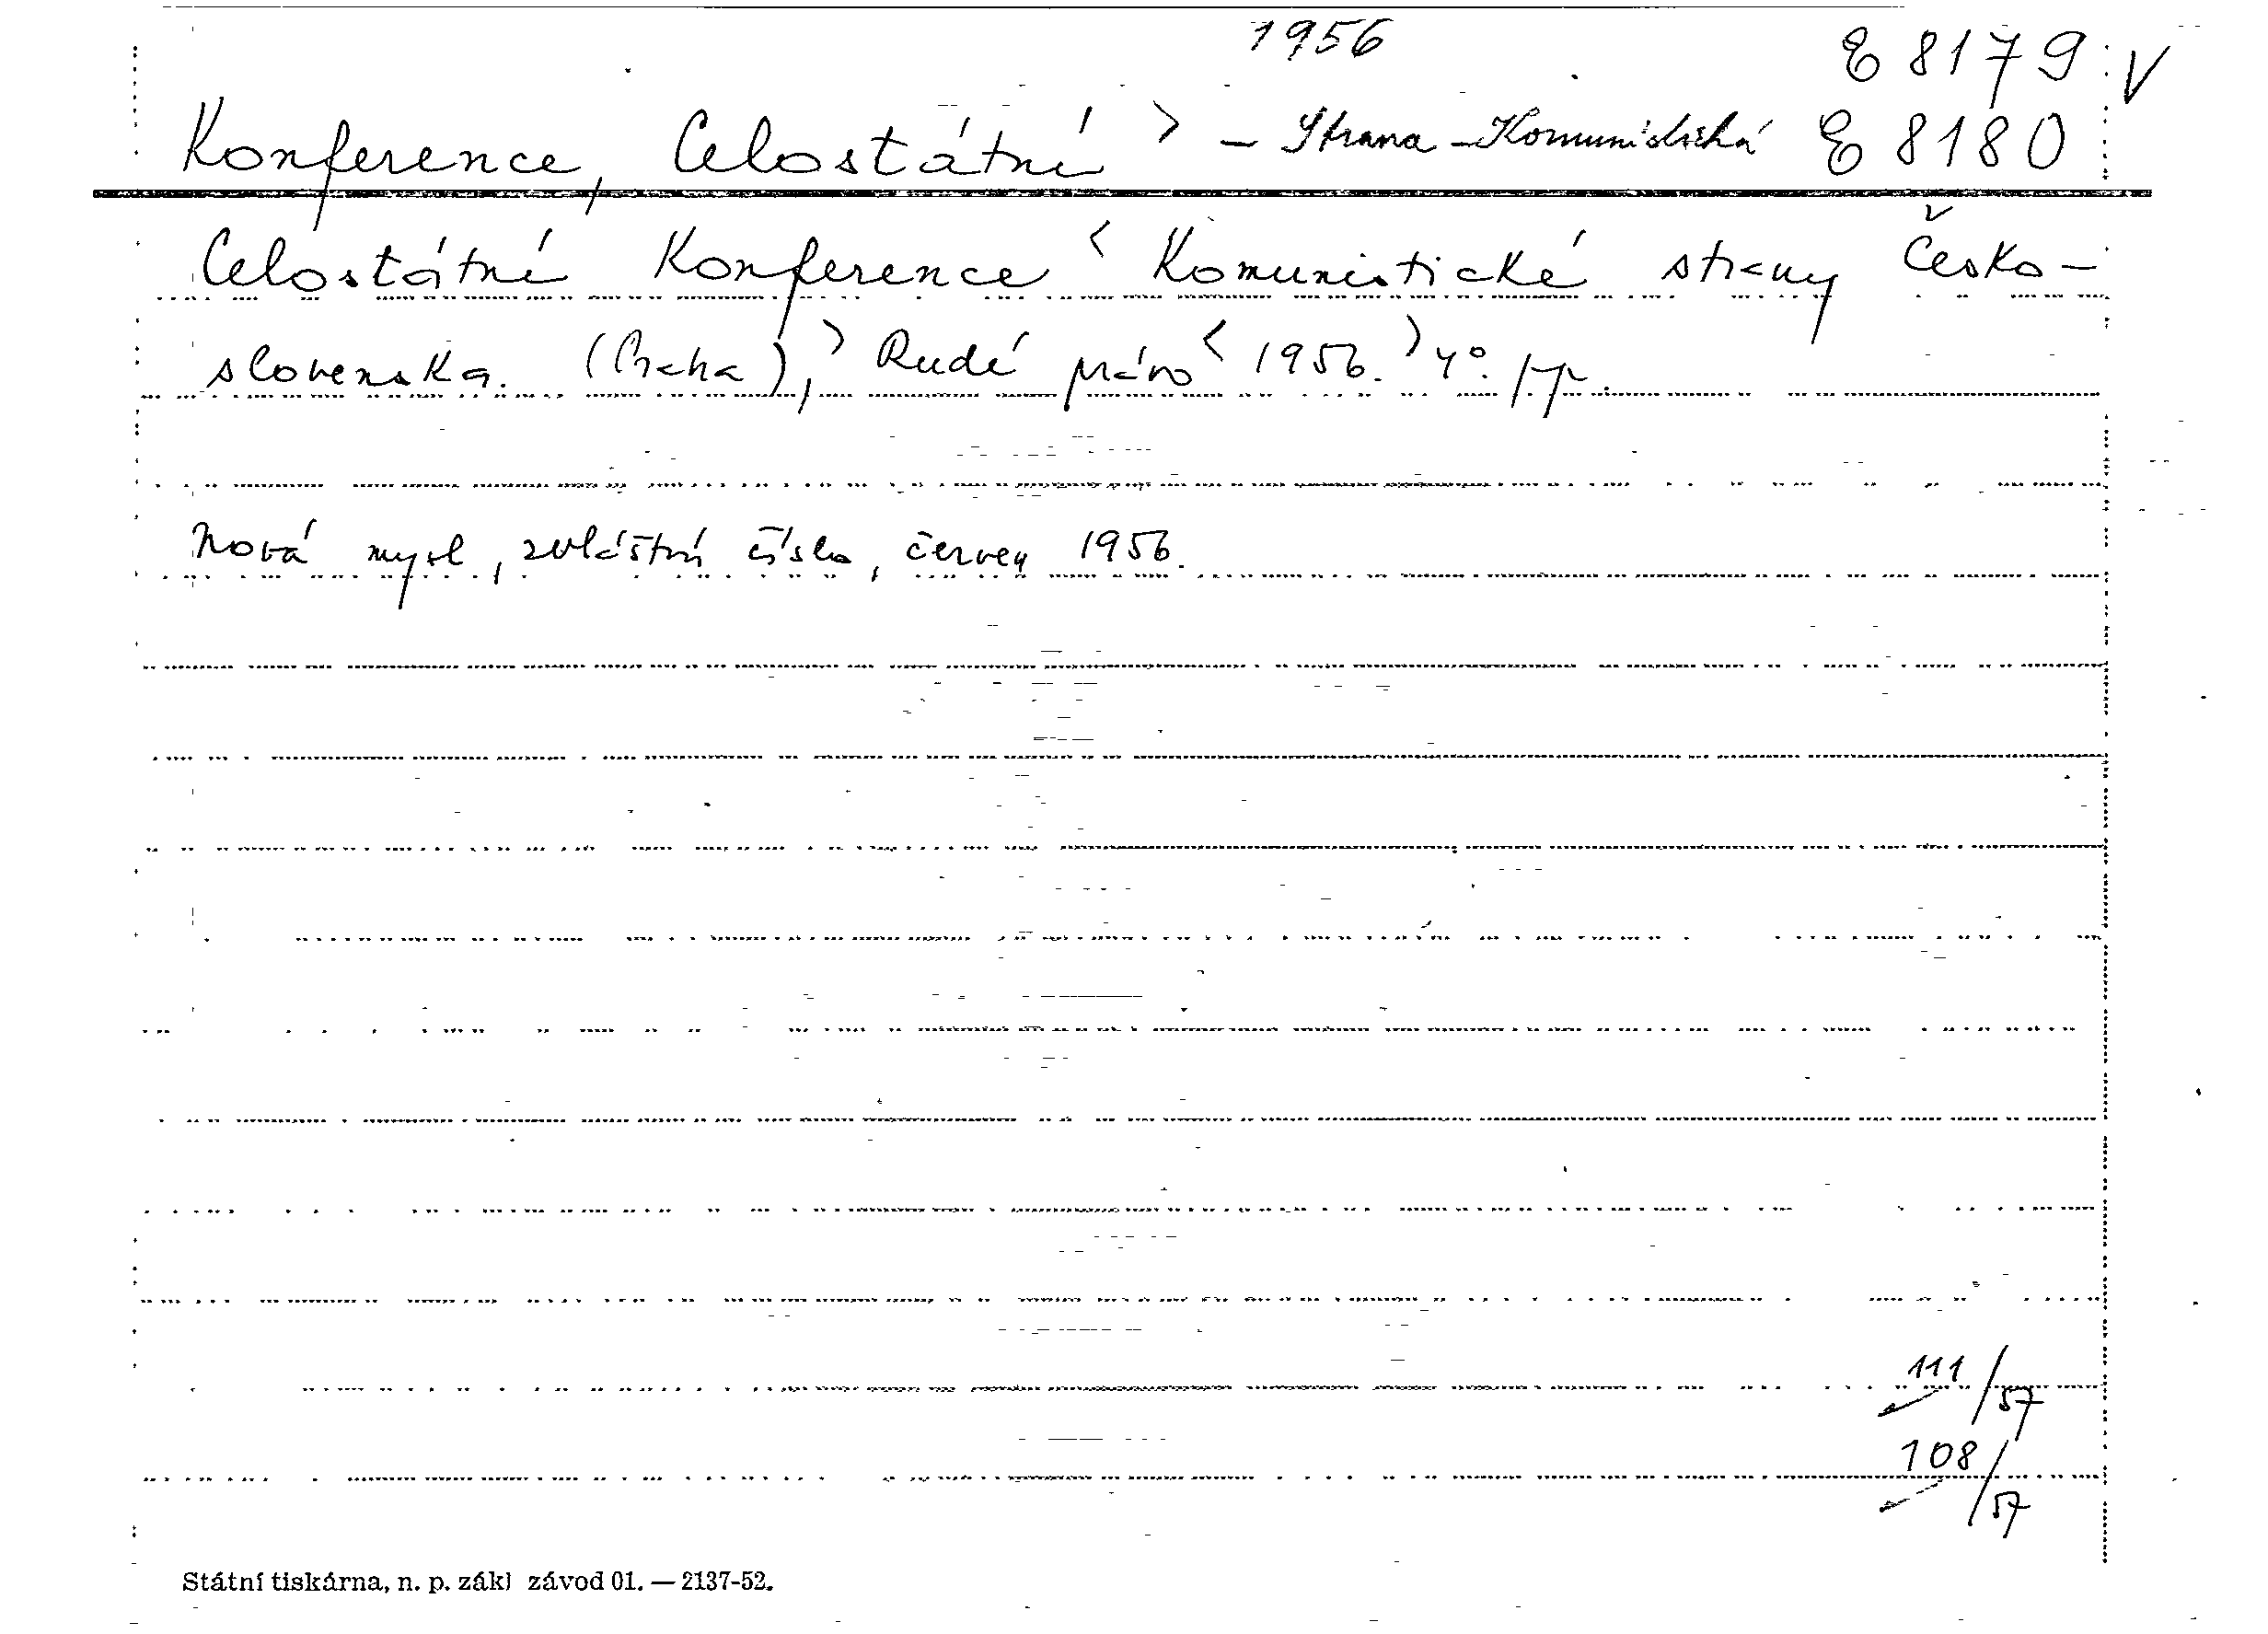 1956
E 8179 V
Konference, Celostátní > - Strana - Komunistická E 8180
Celostátní Konference < Komunistické strany Česko-
slovenska. (Praha), > Rudé právo < 1956. > 4°.
Nová mysl, zvláštní číslo, červen 1956.
111/57
108/57
Státní tiskárna, n. p. zákl závod 01. — 2137-52.